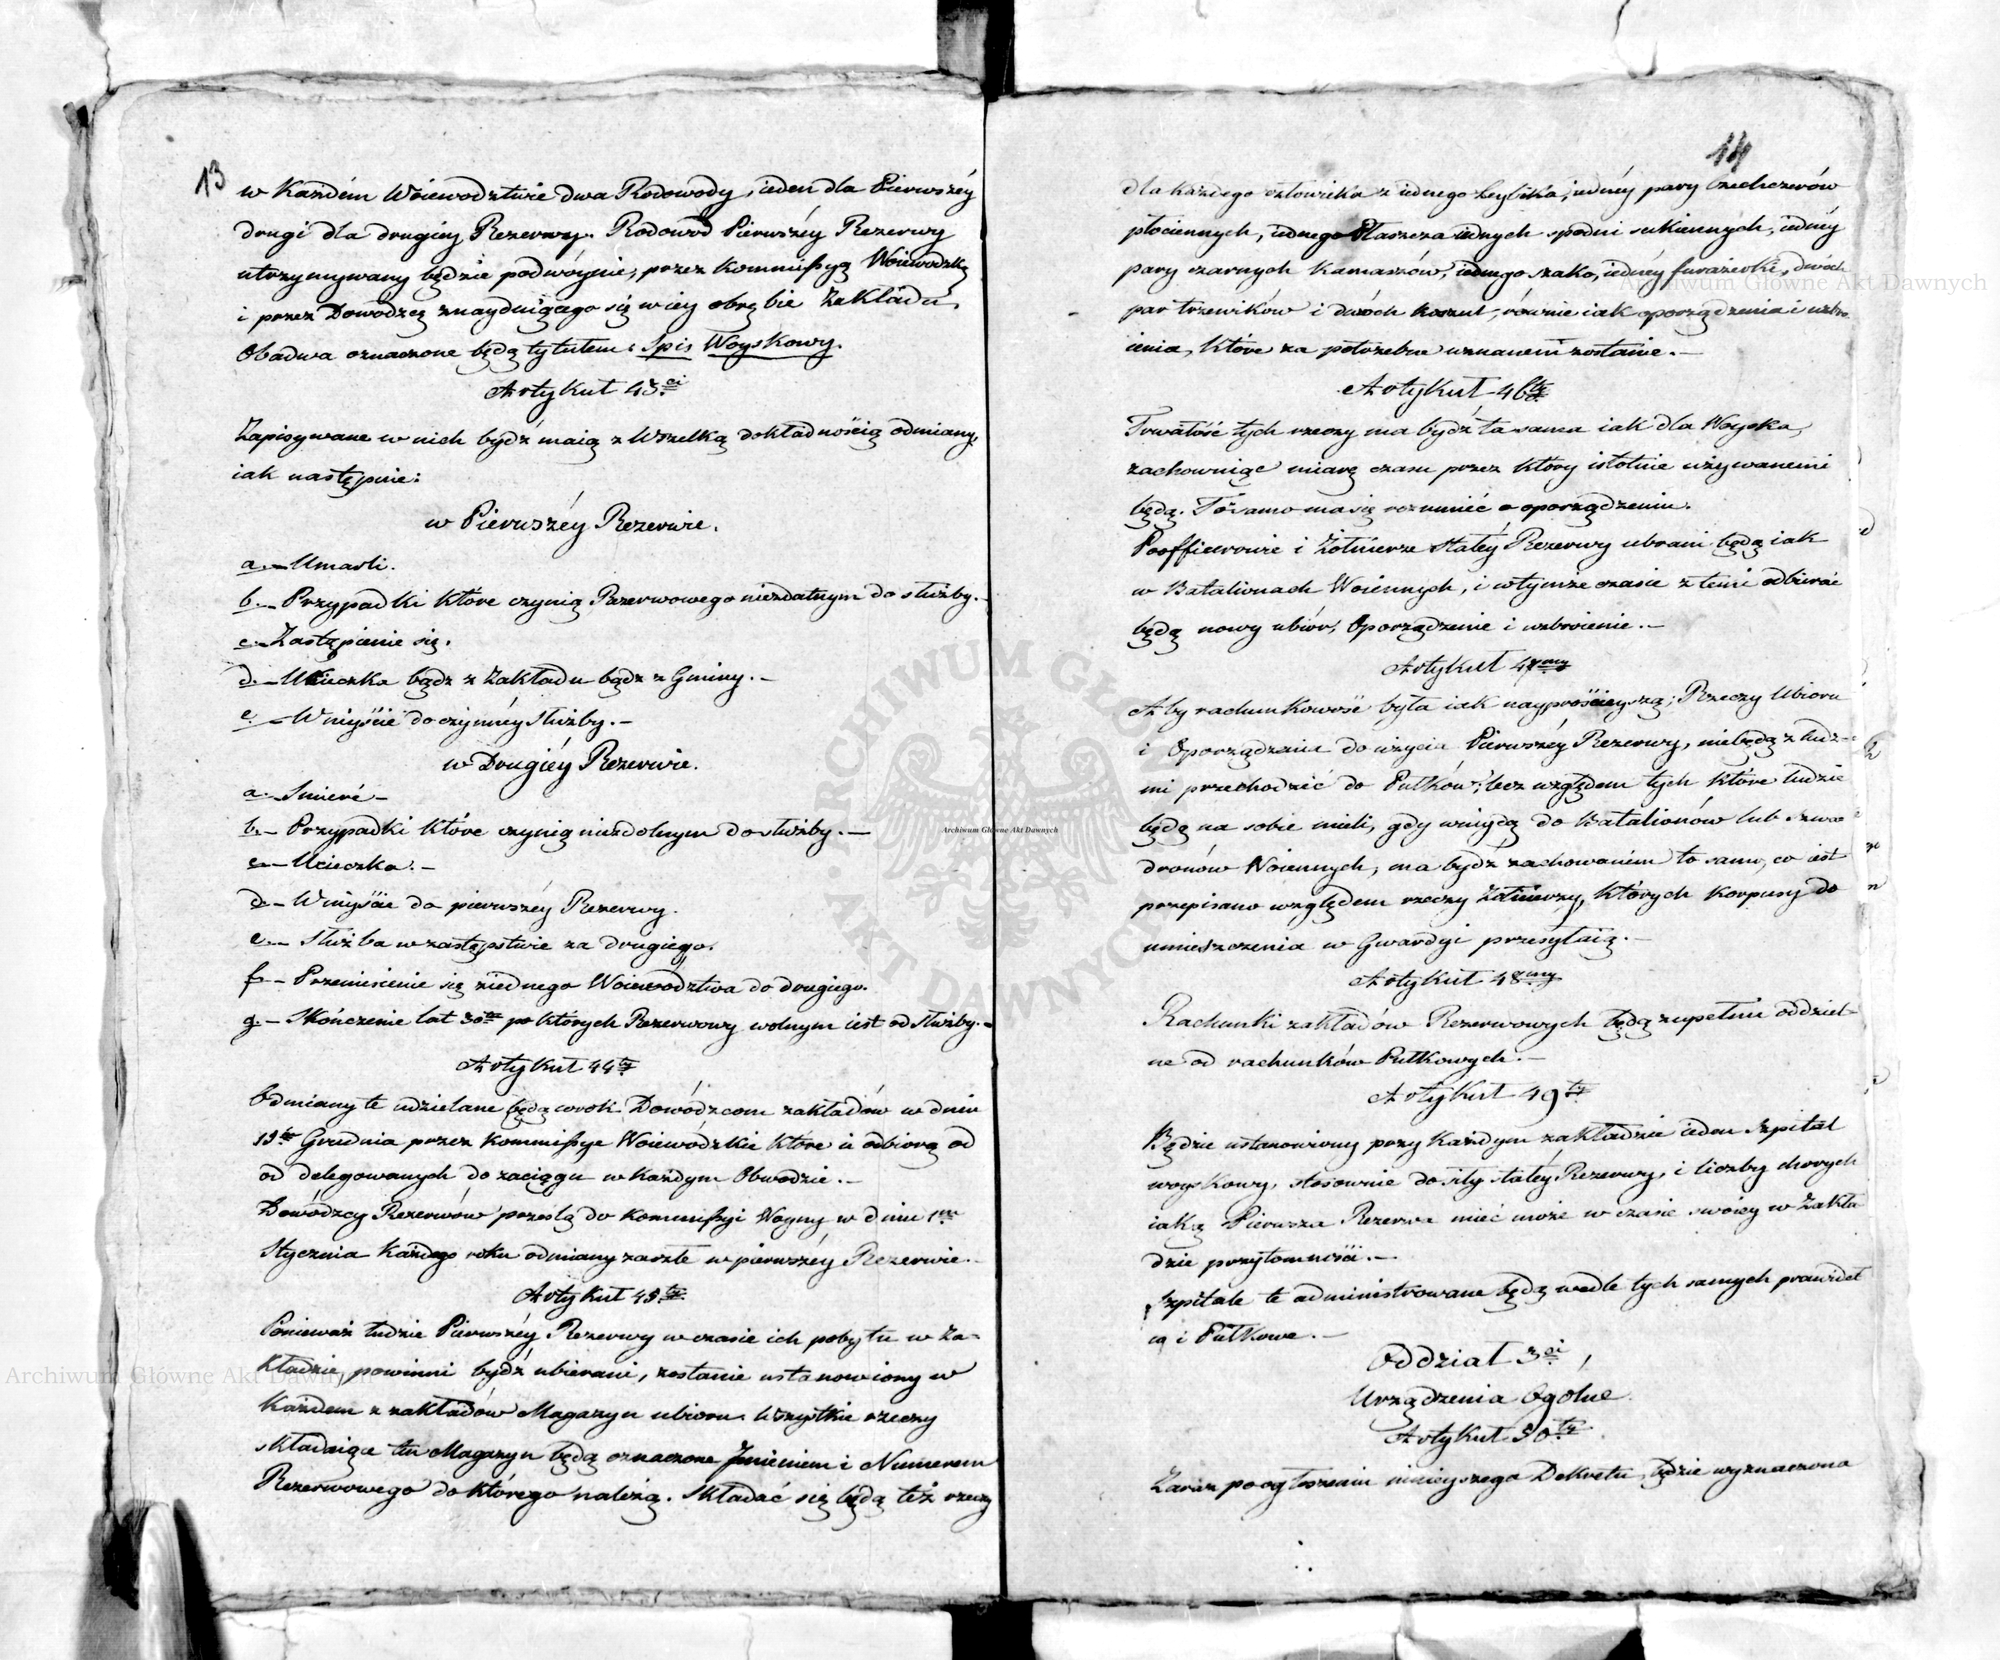 13
w Każdém Woiewodztwie dwa Rodowody, ieden dla Pierwszéy
drugi dla drugiey Rezerwy. Rodowod Pierwszéy Rezerwy
utrzymywany będzie podwóynie, przez Kommissyą Woiewodzką
i przez Dowódzcę znayduiącego się w iey obrębie Zakładu,
Obadwa oznaczone będą tytułem: Spis Woyskowy.
Artykuł 43ci
Zapisywane w nich bydź maią z Wszelką dokładnością odmiany,
iak następnie:
w Pierwszéy Rezerwie.
a. Umarli.
b. Przypadki które czynią Rezerwowego niezdatnym do służby.
c. Zastąpienie się.
d. Ucieczka bądz z Zakładu bądz z Gminy.
e. Wniyście do czynnéy służby.
w Drugiéy Rezerwie.
a. Smierć
b. Przypadki które czynią niezdolnym do służby.
c. Ucieczka.
d. Wniyście do pierwszéy Rezerwy.
e. Służba w zastępstwie za drugiego.
f. Przeniesienie się ziednego Woiewództwa do drugiego.
g. Skończenie lat 30tu po których Rezerwowy wolnym iest od służby.
Artykuł 44ty
Odmiany te udzielane będą corok Dowódzcom zakładów w dniu
15tym Grudnia przez Kommissye Woiewódzkie które ie odbiorą od
od delegowanych do zaciągu w każdym Obwodzie.
Dowódzcy Rezerwów prześlą do Kommissyi Woyny w dniu 1ym
Stycznia Każdego roku odmiany zaszłe w pierwszéy Rezerwie.
Artykuł 45ty
Ponieważ ludzie Pierwszéy Rezerwy w czasie ich pobytu w Za-
kładzie, powinni bydź ubierani, zostanie ustanowiony w
Każdem z zakładów Magazyn ubioru. Wszystkie rzeczy
składaiące ten Magazyn będą oznaczone Jmieniem i Numerem
Rezerwowego do którego należą. Składać się będą też rzeczy
14
dla każdego człowieka z iednego Leybika, iednéy pary Czechczerów
płóciennych, iednego Płaszcza iednych spodni sukiennych, iednéy
pary czarnych Kamaszów, iednego szako, iednéy furażerki, dwóch
par trzewików i dwóch koszul, równie iak oporządzenia i uzbro
ienia, które za potrzebne uznanem zostanie.
Artykuł 46ty
Trwałość tych rzeczy ma bydź ta sama iak dla Woyska,
zachowuiąc miarę czasu przez który istotnie używanemi
będą. Tóż samo ma się rozumieć o oporządzeniu.
Podofficerowie i Żołnierze stałéy Rezerwy ubrani będą iak
w Batalionach Woiennych, i w tymże czasie z temi odbierać
będą nowy ubiór, Oporządzenie i uzbroienie.
Artykuł 47my
Aby rachunkowość była iak nayprościeyszą; Rzeczy Ubioru
i Oporządzenia do użycia Pierwszéy Rezerwy, niebędą z ludz-
mi przechodzić do Pułków; lecz względem tych które ludzie
będą na sobie mieli, gdy wniydą do Batalionów lub Szwa
dronów Woiennych, ma bydź zachowanem to samo, co iest
przepisano względem rzeczy Żołnierzy, których Korpusy do
umieszczenia w Gwardyi przesyłaią.
Artykuł 48my
Rachunki zakładów Rezerwowych będą zupełnie oddziel-
ne od rachunków Pułkowych.
Artykuł 49ty
Będzie ustanowiony przy Każdym zakładzie ieden Szpital
woyskowy, stosownie do siły stałéy Rezerwy, i liczby chorych
iaką Pierwsza Rezerwa mieć może w czasie swóiey w Zakła
dzie przytomności.
Szpitale te administrowane będą wedle tych samych prawideł
co i Pułkowe.
Oddział 3ci
Urządzenia Ogólne.
Artykuł 50ty
Zaraz po ogłoszeniu ninieyszego Dekretu, będzie wyznaczona